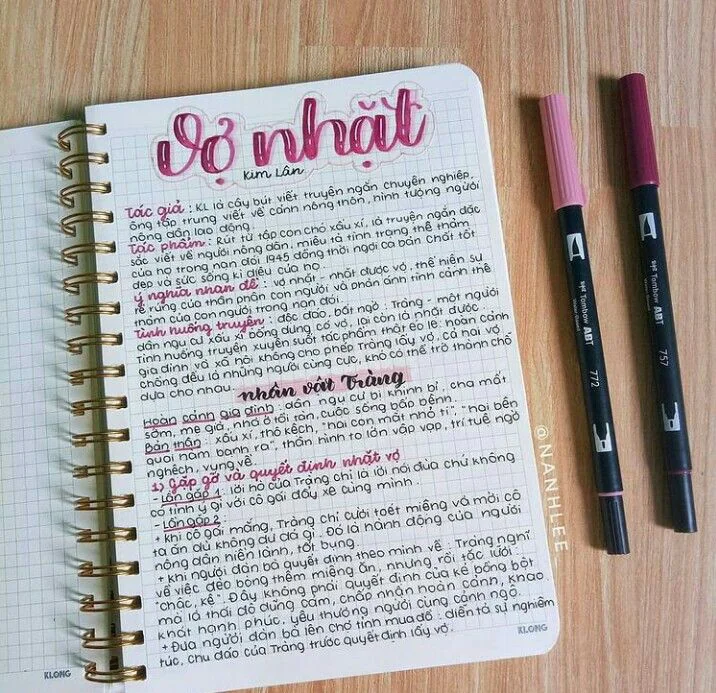 Vợ nhặt
Kim Lân
Tác giả : KL là cây bút viết truyện ngắn chuyên nghiệp,
ông tập trung viết về cảnh nông thôn, hình tượng người
nông dân lao động.
Tác phẩm : Rút từ tập con chó xấu xí, là truyện ngắn đặc
sắc viết về người nông dân, miêu tả tình trạng thê thảm
của họ trong nạn đói 1945 đồng thời ngợi ca bản chất tốt
đẹp và sức sống kì diệu của họ.
ý nghĩa nhan đề : vợ nhặt - nhặt được vợ, thể hiện sự
rẻ rúng của thân phận con người và phản ánh tình cảnh thê
thảm của con người trong nạn đói.
Tình huống truyện : độc đáo, bất ngờ : Tràng - một người
dân ngụ cư xấu xí bỗng dưng có vợ, lại còn là nhặt được.
Tình huống truyện xuyên suốt tác phẩm thật éo le: hoàn cảnh
gia đình và xã hội không cho phép Tràng lấy vợ, cả hai vợ
chồng đều là những người cùng cực, khó có thể trở thành chỗ
dựa cho nhau.
nhân vật Tràng
Hoàn cảnh gia đình : dân ngụ cư bị khinh bỉ, cha mất
sớm, mẹ già, nhà ở tồi tàn, cuộc sống bấp bênh.
Bản thân : xấu xí, thô kệch, "hai con mắt nhỏ tí", "hai bên
quai hàm bạnh ra", thân hình to lớn vập vạp, trí tuệ ngờ
nghệch, vụng về.
1) gặp gỡ và quyết định nhặt vợ
- Lần gặp 1 : lời hò của Tràng chỉ là lời nói đùa chứ không
có tình ý gì với cô gái đẩy xe cùng mình.
- Lần gặp 2 :
+ khi cô gái mắng, Tràng chỉ cười toét miệng và mời cô
ta ăn dù không dư dả gì. Đó là hành động của người
nông dân hiền lành, tốt bụng.
+ khi người đàn bà quyết định theo mình về : Tràng nghĩ
về việc đèo bòng thêm miệng ăn, nhưng rồi tặc lưỡi
"chậc, kệ". Đây không phải quyết định của kẻ bồng bột
mà là thái độ dũng cảm, chấp nhận hoàn cảnh, khao
khát hạnh phúc, yêu thương người cùng cảnh ngộ.
+ Đưa người đàn bà lên chợ tỉnh mua đồ : diễn tả sự nghiêm
túc, chu đáo của Tràng trước quyết định lấy vợ.
KLONG
KLONG
@NANHLEE
Tombow ABT
772
Tombow ABT
757